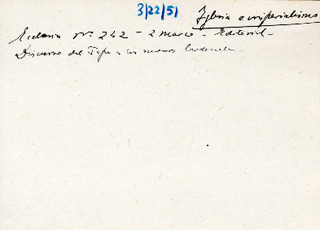 3/22/51
Iglesia e imperialismo
Nº 242 - 2 Marzo - Editorial -
Discurso del Papa a los nuevos Cardenales -